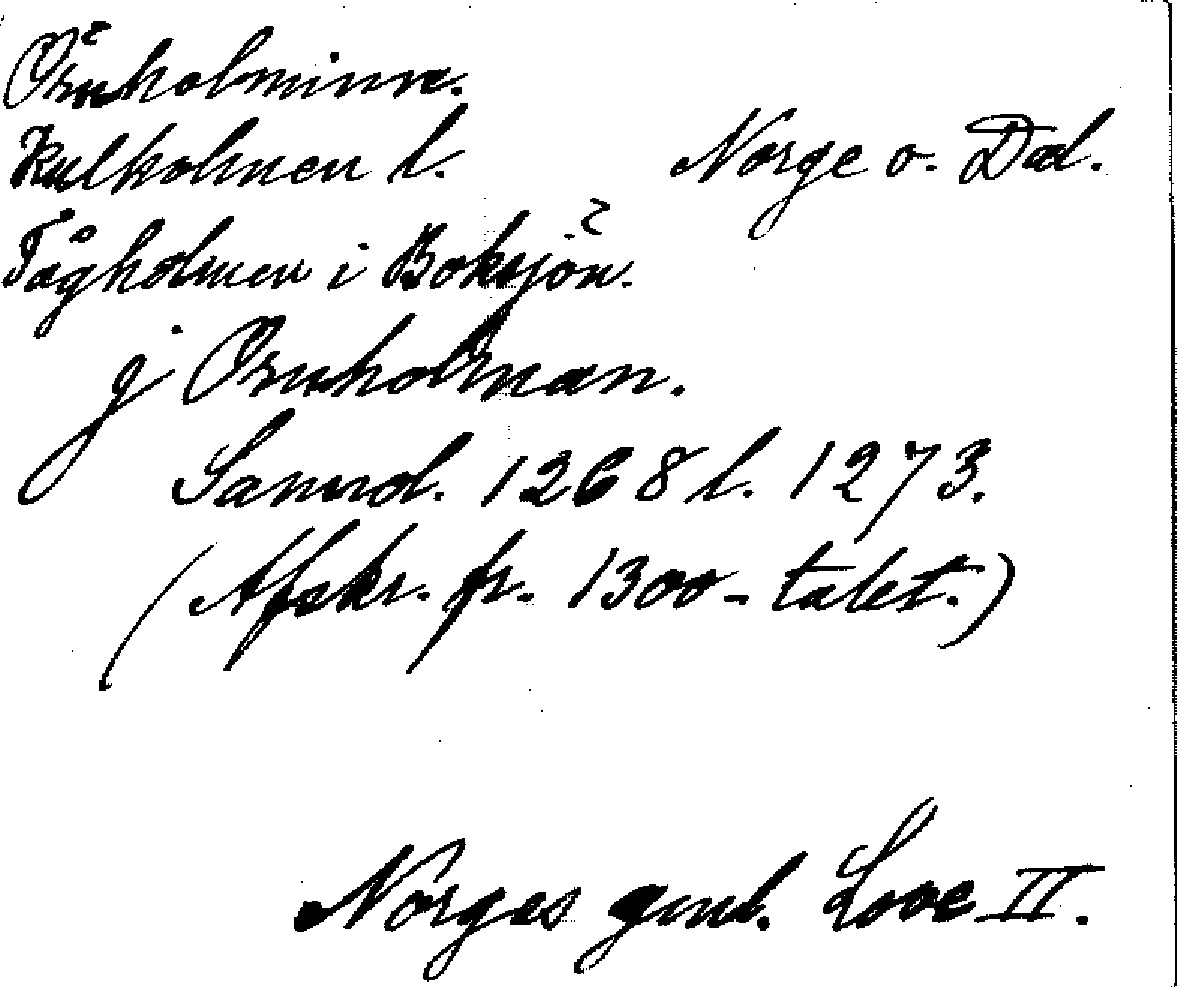 Örnholminne.
Kulholmen l. Norge o. Dal.
Tågholmen i Boksjön.
j Ornholman.
Samrd. 1268 l. 1273.
(Afskr. fr. 1300-talet.)
Norges gml. Love II.